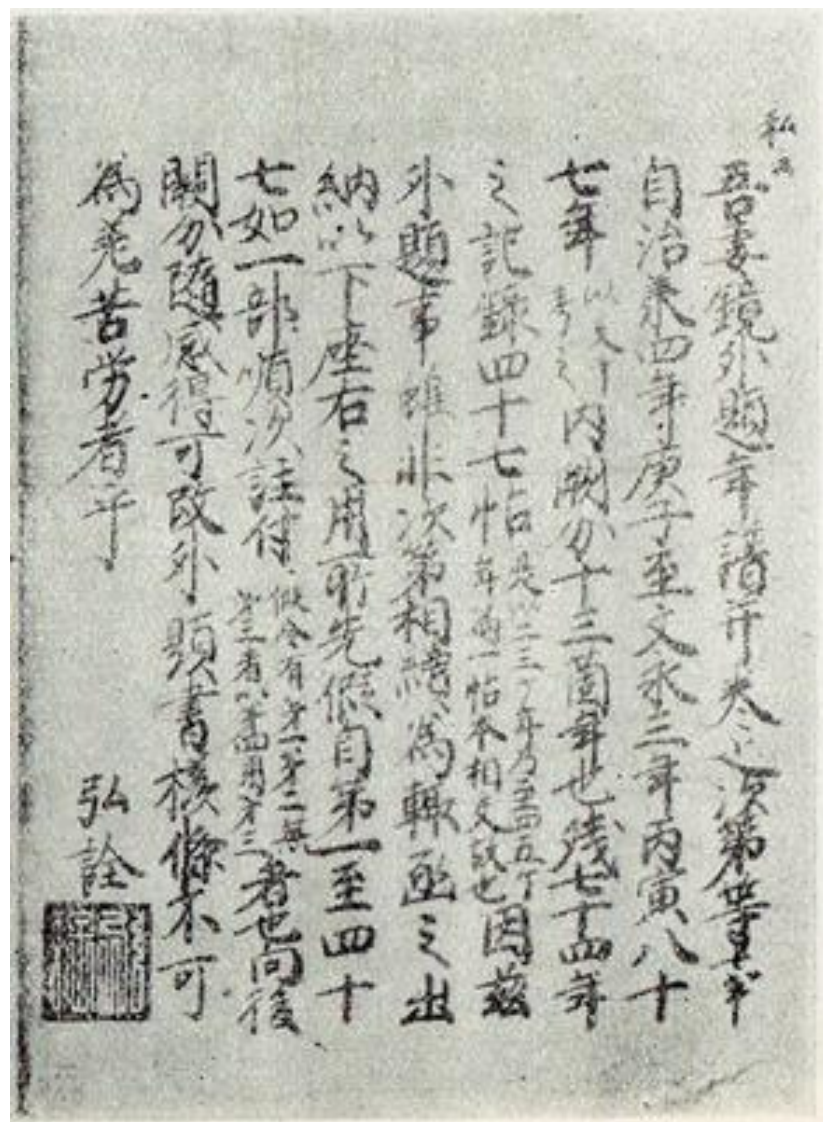 私云
吾妻鏡外題年譜并巻之次第
自治承四年庚子至文永三年丙寅八十
七年
以文下
考之
内闕分十三箇年也残七十四年
之記録四十七帖
是以二三ケ年乃至四五ケ
年為一帖不相交故也
因茲
外題事雖非次第相續為輙函之出
納以下座右之用所先假自第一至四十
七如一部順次註付
假令有第一第二無
第三者以第四用第三
者也向後
闕分隨感得可改外題書様條不可
為羌苦労者乎
弘詮